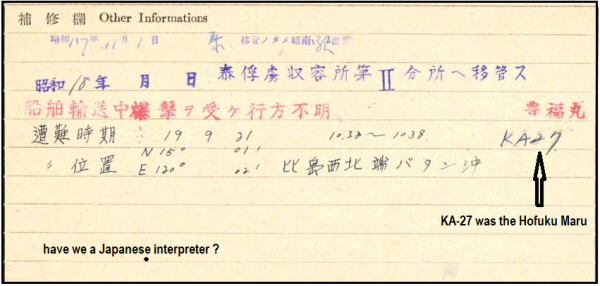 補修欄 Other Informations
昭和17年11月1日 泰 移管ノタメ昭南
昭和18年 月 日 泰俘虜収容所第Ⅱ分所ヘ移管ス
船舶輸送中爆撃ヲ受ケ行方不明 豊福丸
遭難時期 19 9 21 1038~1038 KA27
〃 位置 N 15° 01' E 120° 02' 比島西北端バタン沖
KA-27 was the Hofuku Maru
have we a Japanese interpreter ?